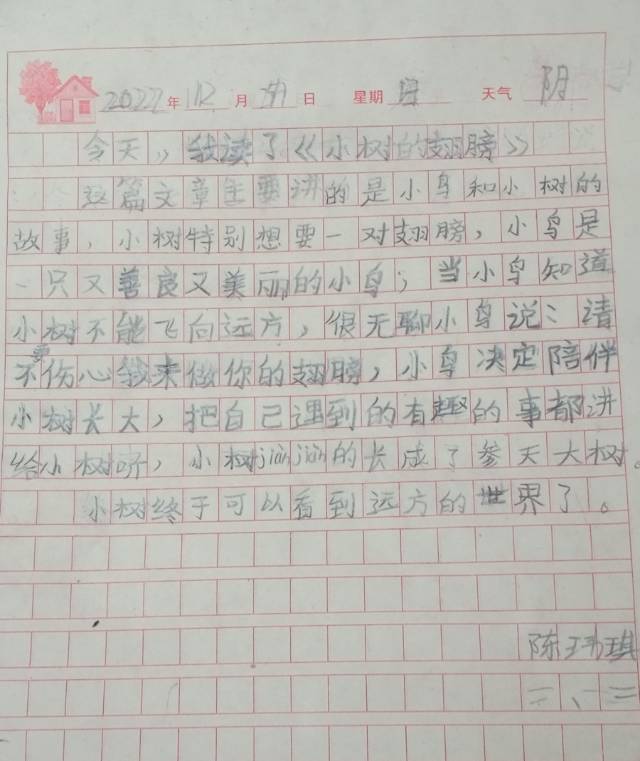 2022年12月 日 星期 天气 阴
今天，我读了《小树的翅膀》
这篇文章主要讲的是小鸟和小树的
故事，小树特别想要一对翅膀，小鸟是
一只又善良又美丽的小鸟；当小鸟知道
小树不能飞向远方，很无聊小鸟说：请
不要伤心我来做你的翅膀，小鸟决定陪伴
小树长大，把自己遇到的有趣的事都讲
给小树听，小树jiàn jiàn的长成了参天大树。
小树终于可以看到远方的世界了。
陈玮琪
二、一三